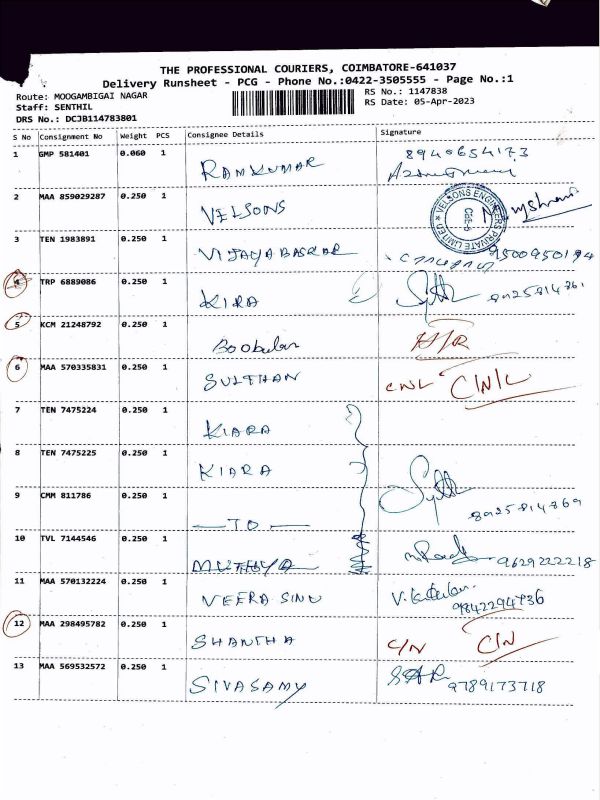 THE PROFESSIONAL COURIERS, COIMBATORE-641037
Delivery Runsheet - PCG - Phone No.:0422-3505555 - Page No.:1
Route: MOOGAMBIGAI NAGAR RS No.: 1147838
Staff: SENTHIL RS Date: 05-Apr-2023
DRS No.: DCJB114783801
S No Consignment No Weight PCS Consignee Details Signature
1 GMP 581401 0.060 1 RAMKUMAR 8940654173
2 MAA 859029287 0.250 1 VELSONS VELSONS ENGINEERS PRIVATE LIMITED
3 TEN 1983891 0.250 1 VIJAYABASKAR 9500950194
4 TRP 6889086 0.250 1 KIRA
5 KCM 21248792 0.250 1 Boobalan
6 MAA 570335831 0.250 1 SULTHAN CNL C/N/L
7 TEN 7475224 0.250 1 KIARA
8 TEN 7475225 0.250 1 KIARA
9 CMM 811786 0.250 1 —TO— 8925814869
10 TVL 7144546 0.250 1 MUTHYA 9629222218
11 MAA 570132224 0.250 1 VEERA SINU 9842294736
12 MAA 298495782 0.250 1 SHANTHA C/N C/N
13 MAA 569532572 0.250 1 SIVASAMY 9789173718